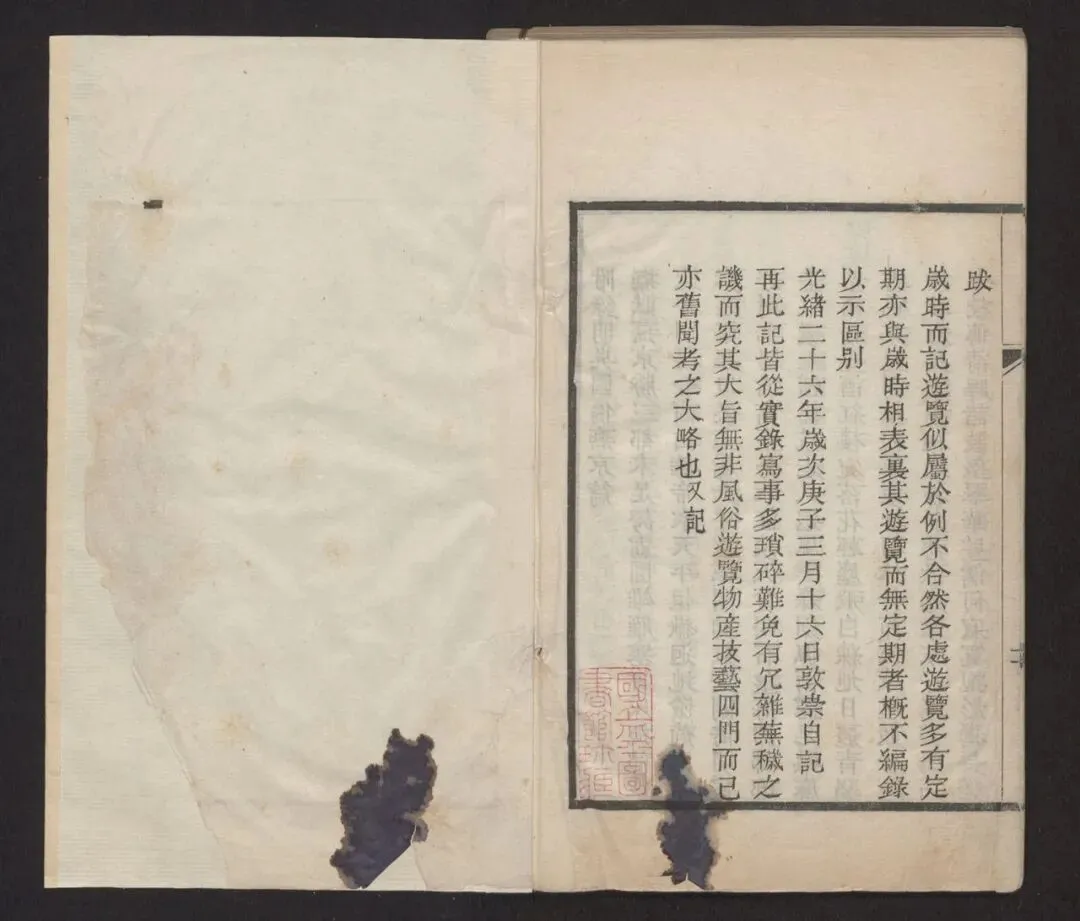 跋
歲時而記遊覽似屬於例不合然各處遊覽多有定
期亦與歲時相表裏其遊覽而無定期者概不編錄
以示區别
光緒二十六年歲次庚子三月十六日敦崇自記
再此記皆從實錄寫事多瑣碎難免有冗雜蕪穢之
譏而究其大旨無非風俗遊覽物產技藝四門而已
亦舊聞考之大略也又記